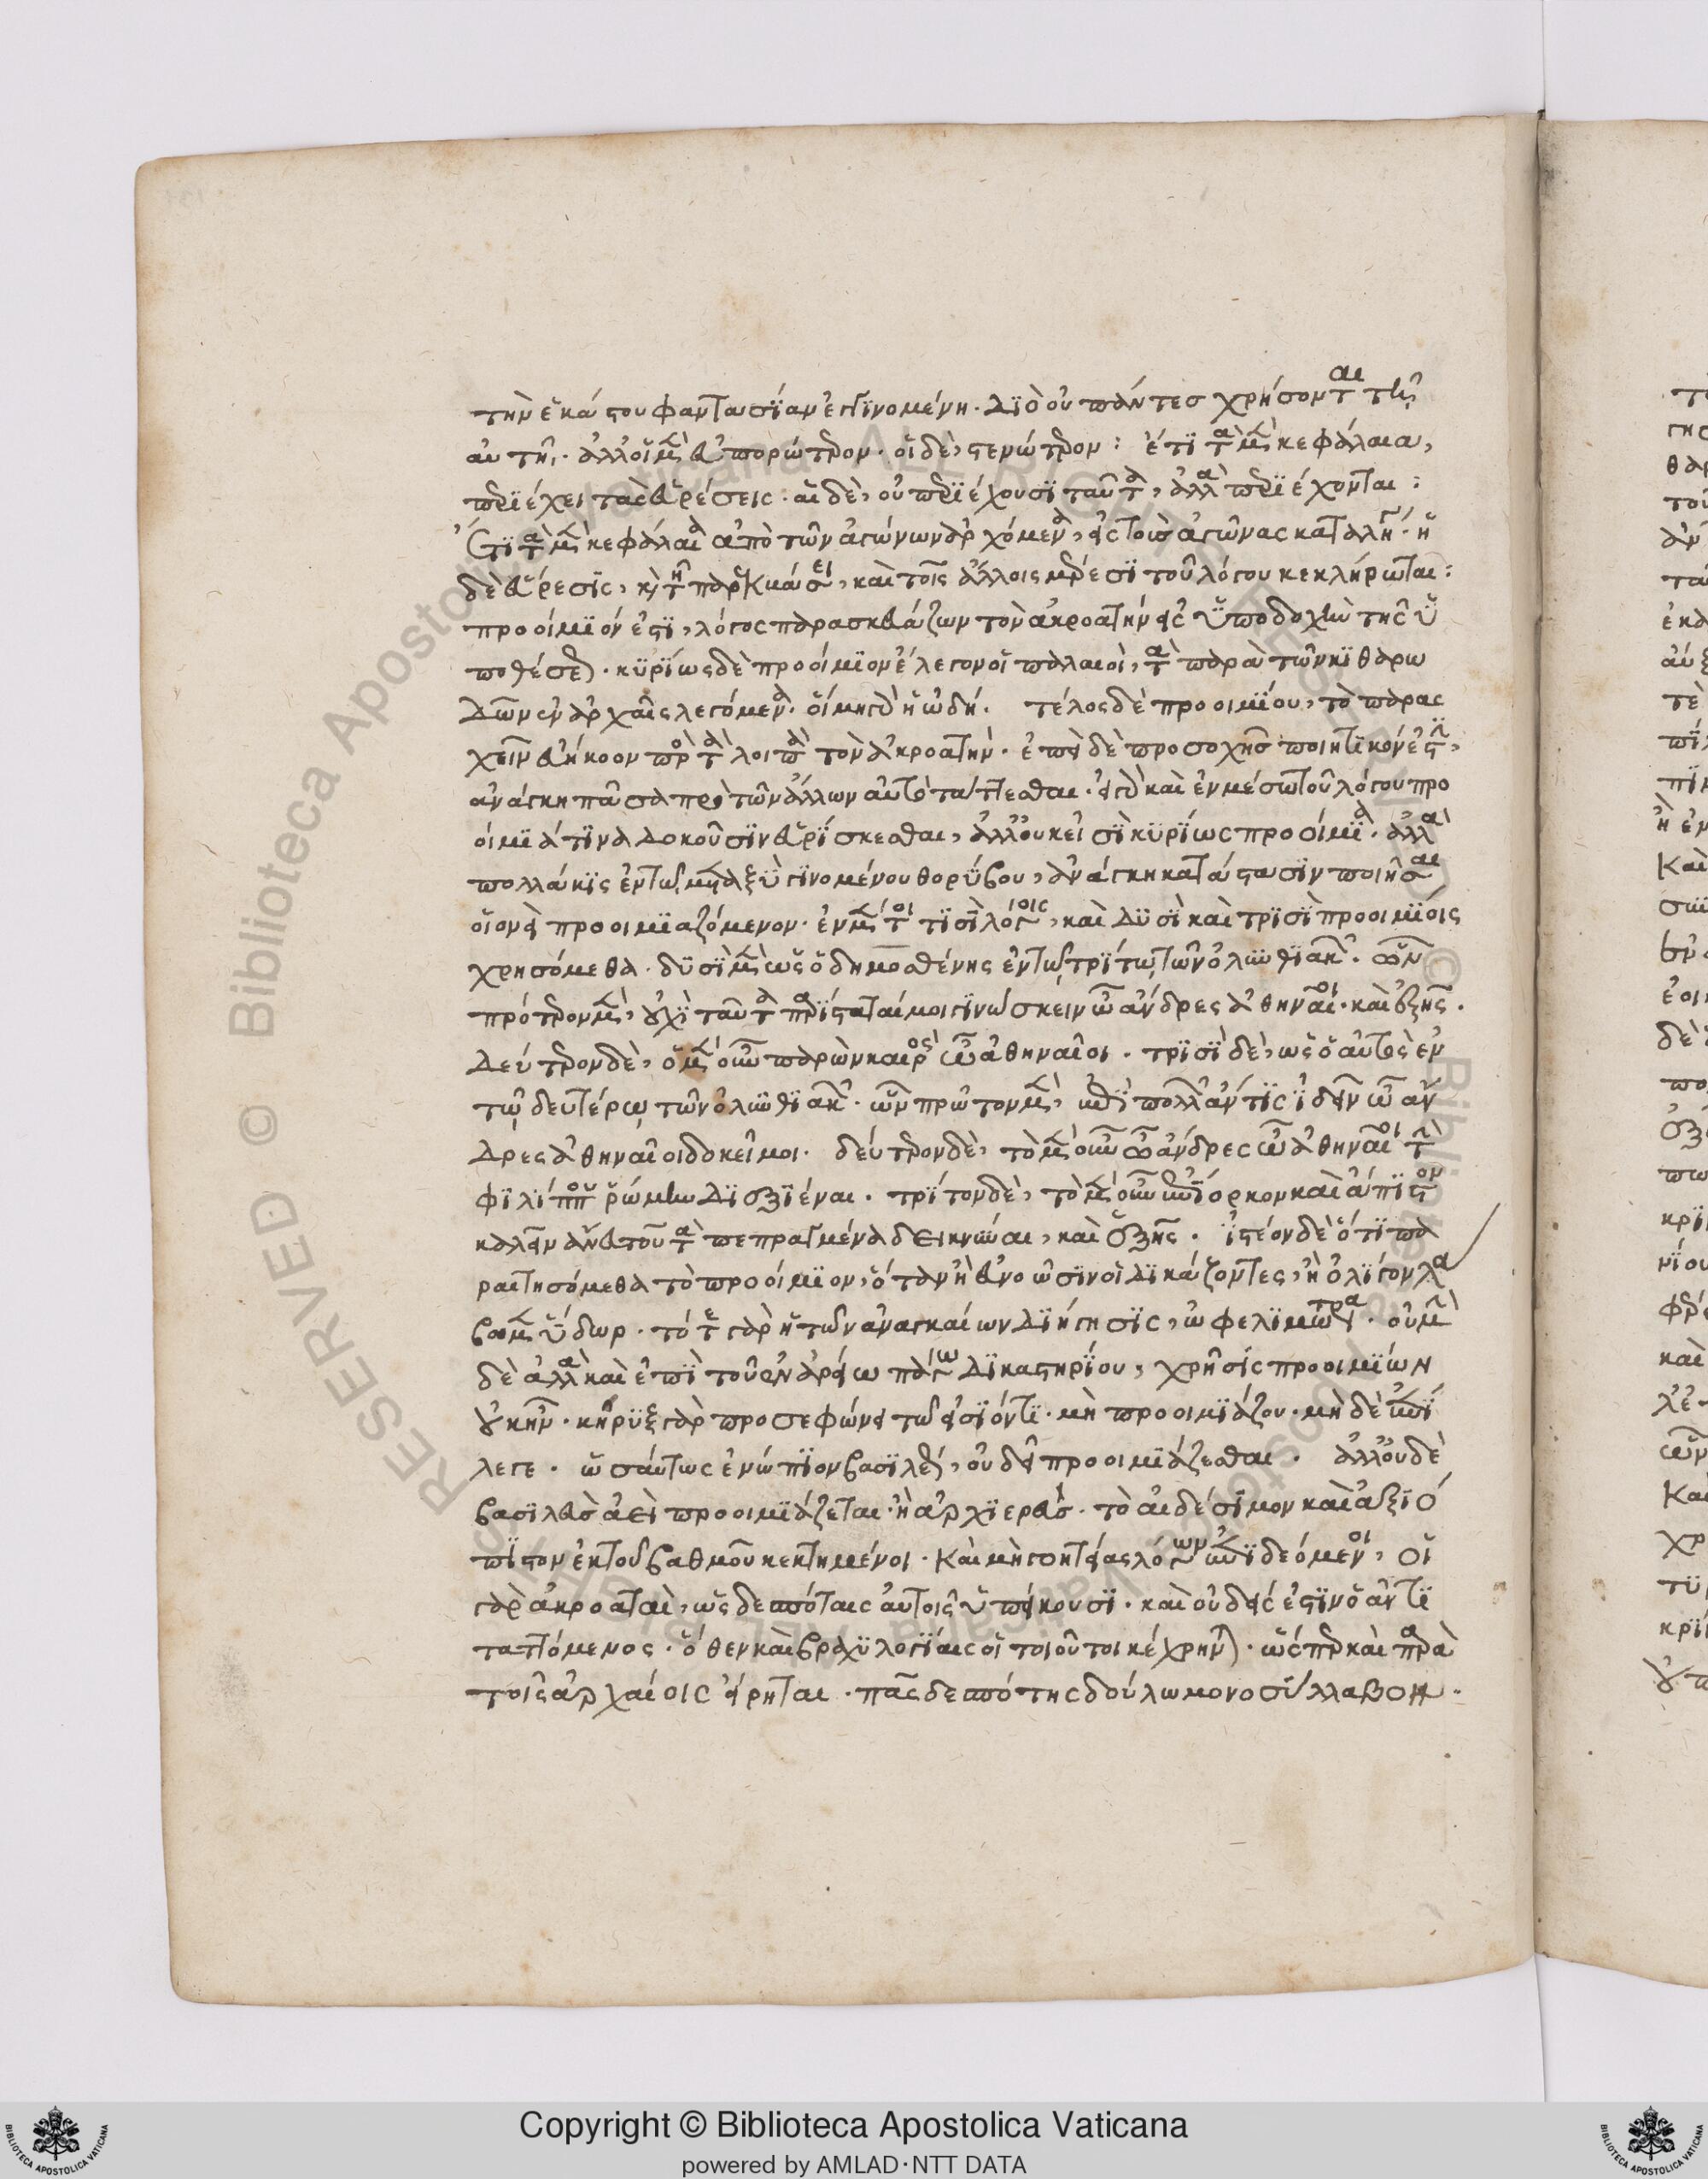 τὴν ἑκάστου φαντασίαν ἐγγινομένη. διὸ οὐ πάντες χρήσονται τῆ
αὐτῆ. ἀλλ' οἱ μὲν εὐπορώτερον. οἱ δὲ, στενώτερον: ἔτι τὰ μὲν κεφάλαια,
περιέχει τὰς εὑρέσεις. αἱ δὲ, οὐ περιέχουσι ταῦτα, ἀλλὰ περιέχονται:
Ἔτι τὰ μὲν κεφάλαια ἀπὸ τῶν ἀγώνων ἀρχόμενα, εἰς τοὺς ἀγῶνας καταλήγει. ἡ
δὲ εὕρεσις, καὶ τῆ παρασκευάσει, καὶ τοῖς ἄλλοις μέρεσι τοῦ λόγου κεκλήρωται:
προοίμιόν ἐστι, λόγος παρασκευάζων τὸν ἀκροατὴν εἰς ὑποδοχὴν τῆς ὑ
ποθέσεως. κυρίως δὲ προοίμιον ἔλεγον οἱ παλαιοὶ, τὰ παρὰ τῶν κιθαρω
δῶν ἐν ἀρχαῖς λεγόμενα. οἴμη γὰρ ἡ ὠδή. τέλος δὲ προοιμίου, τὸ παρας
χεῖν εὐήκοον πρὸς τὰ λοιπὰ τὸν ἀκροατήν. ἐπεὶ δὲ προσοχῆς ποιητικόν ἐστι,
ἀνάγκη πᾶσα πρὸ τῶν ἄλλων αὐτὸ τάττεσθαι. εἰ γὰρ καὶ ἐν μέσω τοῦ λόγου προ
οίμιά τινα δοκοῦσιν εὑρίσκεσθαι, ἀλλ' οὐκ εἰσὶ κυρίως προοίμια. ἀλλὰ
πολλάκις ἐν τῶ μεταξὺ γινομένου θορύβου, ἀνάγκη κατάστασιν ποιῆσαι
οἱονεὶ προοιμιαζόμενον. ἐν μέν τοι τισὶ λόγοις, καὶ δυσὶ καὶ τρισὶ προοιμίοις
χρησόμεθα. δυσὶ μὲν ὡς ὁ δημοσθένης ἐν τῶ τρίτω τῶν ὀλυνθιακῶν. ὧν
πρότερον μὲν, οὐχὶ ταῦτα παρίσταταί μοι γινώσκειν ὦ ἄνδρες ἀθηναῖοι. καὶ ἑξῆς.
δεύτερον δὲ, ὁ μὲν οὖν παρὼν καιρὸς ὦ ἀθηναῖοι. τρισὶ δὲ, ὡς ὁ αὐτὸς ἐν
τῶ δευτέρω τῶν ὀλυνθιακῶν. ὧν πρῶτον μὲν, ἐπὶ πολλῶν ἄν τις ἰδεῖν ὦ ἄν
δρες ἀθηναῖοι δοκεῖ μοι. δεύτερον δὲ, τὸ μὲν οὖν ὦ ἄνδρες ὦ ἀθηναῖοι τὴν
φιλίππου ῥώμην διεξιέναι. τρίτον δὲ, τὸ μὲν οὖν ἐπίορκον καὶ ἄπιστον
καλεῖν ἄνευ τοῦ τὰ πεπραγμένα δεικνύναι, καὶ ἑξῆς. ἰστέον δὲ ὅτι πα
ραιτησόμεθα τὸ προοίμιον, ὅταν ἢ εὖνοι ὦσιν οἱ δικάζοντες, ἢ ὀλίγον λα
βωμεν ὕδωρ. τότε γὰρ ἡ τῶν ἀναγκαίων διήγησις, ὠφελιμωτέρα. οὐ μὴν
δὲ ἀλλὰ καὶ ἐπὶ τοῦ ἐν ἀρείω πάγω δικαστηρίου, χρῆσις προοιμίων
οὐκ ἦν. κήρυξ γὰρ προσεφώνει τῶ εἰσιόντι. μὴ προοιμιάζου. μὴ δὲ ἐπί
λεγε. ὡσαύτως ἐνώπιον βασιλέως, οὐ δεῖ προοιμιάζεσθαι. ἀλλ' οὐδὲ
βασιλεὺς ἀεὶ προοιμιάζεται. ἢ ἀρχιερεύς. τὸ αἰδέσιμον καὶ ἀξιό
πιστον ἐκ τοῦ βαθμοῦ κεκτημένοι. καὶ μὴ γοητείας λόγων ἐπιδεόμενοι, οἱ
γὰρ ἀκροαταὶ, ὡς δεσπόταις αὐτοῖς ὑπείκουσι. καὶ οὐδείς ἐστιν ὁ ἀντι
ταττόμενος. ὅθεν καὶ βραχυλογίαις οἱ τοιοῦτοι κέχρηνται. ὥσπερ καὶ παρὰ
τοῖς ἀρχαίοις εἴρηται. πᾶς δεσπότης δούλω μονοσύλλαβον.
Copyright © Biblioteca Apostolica Vaticana
powered by AMLAD·NTT DATA